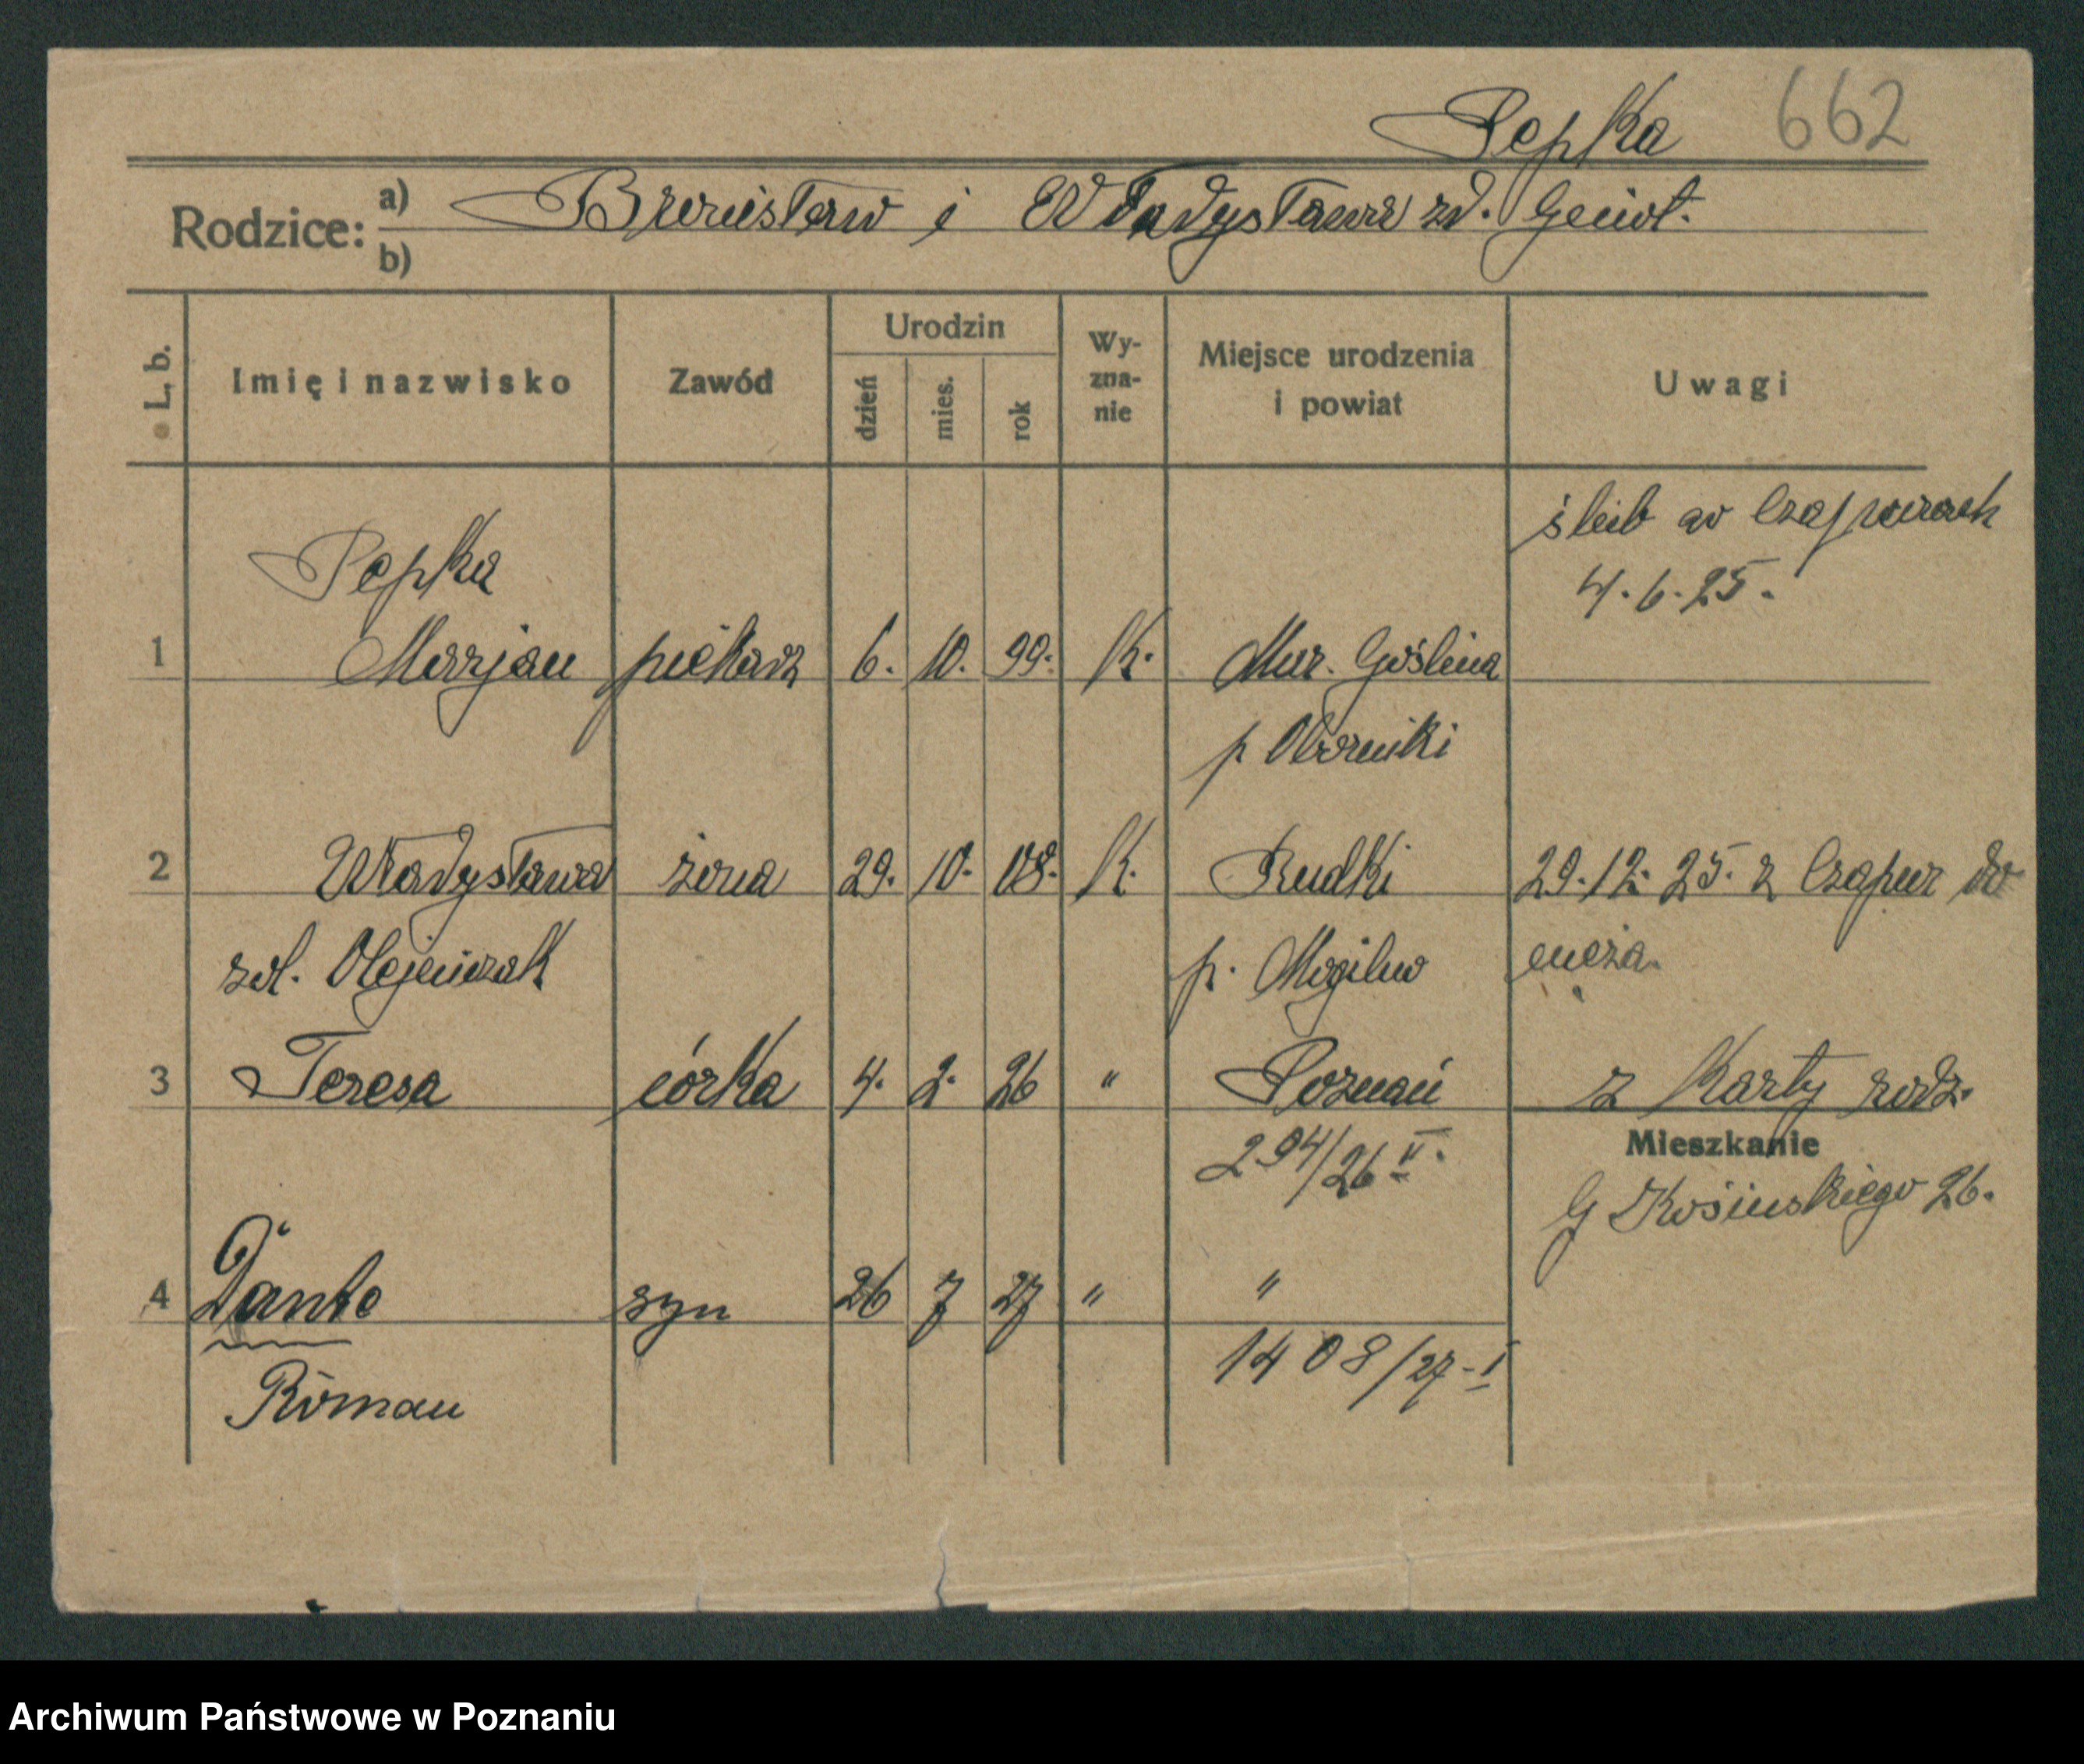 Pepka 662
Rodzice: a) Bronisław i Władysława zd.
b)
L. b.
Imię i nazwisko
Zawód
Urodzin
dzień
mies.
rok
Wy-
zna-
nie
Miejsce urodzenia
i powiat
Uwagi
ślub w Czapurach
4. 6. 25.
Pepka
1 Marjan piekarz 6. 10. 99. K. Mur. Goślina
p Oborniki
2 Władysława żona 29. 10. 08. K. Rudki 29. 12. 25. z Czapur do
męża.
zd. Olejniczak p. Mogilno
3 Teresa córka 4. 2. 26 " Poznań z Karty rodz.
Mieszkanie
294/26 II.
G Kosińskiego 26.
4 Dante syn 26 7 27 " "
1408/27-I
Roman
Archiwum Państwowe w Poznaniu